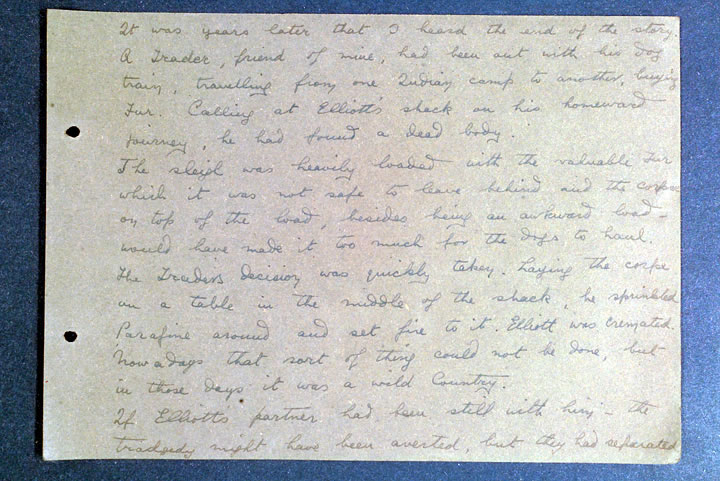 It was years later that I heard the end of the story.
A Trader, friend of mine, had been out with his Dog
train, travelling from one Indian camp to another, buying
Fur. Calling at Elliott's shack on his homeward
journey, he had found a dead body.
The sleigh was heavily loaded with the valuable Fur
which it was not safe to leave behind and the corpse
on top of the load, besides being an awkward load -
would have made it too much for the dogs to haul.
The Traders decision was quickly taken. Laying the corpe
on a table in the middle of the shack, he sprinkled
Parafine around and set fire to it. Elliott was cremated.
Nowadays that sort of thing could not be done, but
in those days it was a wild Country.
If Elliott's partner had been still with him - the
tradgedy might have been averted, but they had separated